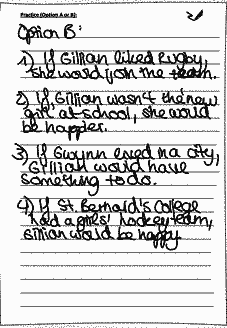 Practice (Option A or B):
Option B:
1) If Gillian liked Rugby,
she would join the team.
2) If Gillian wasn't the new
girl at school, she would
be happier.
3) If Gwynn lived in a city,
Gillian would have
something to do.
4) If St. Bernard's College
had a girls' hockey team,
Gillian would be happy